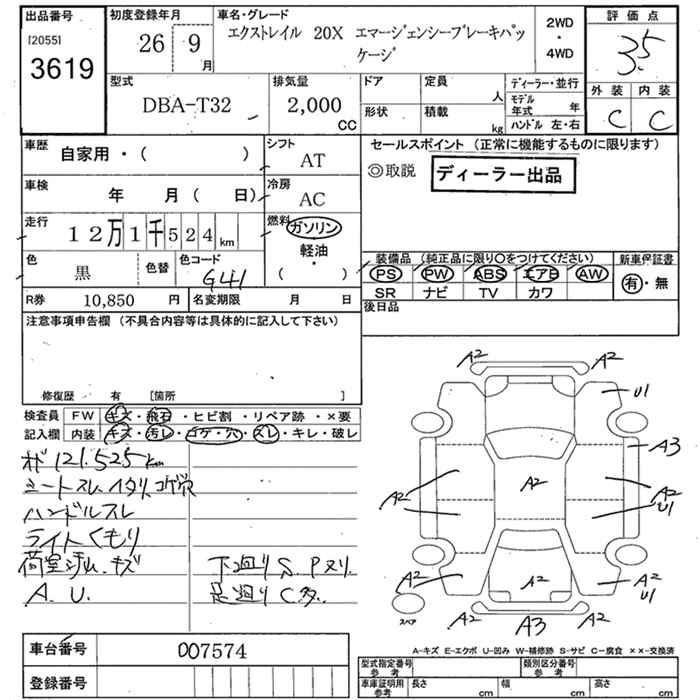 出品番号 初度登録年月 車名・グレード 2WD・4WD 評価点
[2055] 3619 26 9月 エクストレイル 20X エマージェンシーブレーキパッ
ケージ 3.5
型式 排気量 ドア 定員 人 ディーラー・並行 外装 内装
DBA-T32 2,000 CC 形状 積載 kg モデル年式 年 C C
ハンドル 左・右
車歴 自家用・( ) シフト AT セールスポイント (正常に機能するものに限ります)
車検 年 月( 日) 冷房 AC ◎取説 ディーラー出品
走行 12万1千524km 燃料 ガソリン
軽油・
( )
色 黒 色替 色コード G41
装備品 (純正品に限り〇をつけてください) 新車保証書
PS PW ABS エアB AW 有・無
SR ナビ TV カワ
R券 10,850 円 名変期限 月 日 後日品
注意事項申告欄 (不具合内容等は具体的に記入して下さい)
修復歴 有 [箇所 ]
検査員 FW キズ・飛石・ヒビ割・リペア跡・×要
記入欄 内装 キズ・汚レ・コゲ・穴・スレ・キレ・破レ
オド121.525km
シートスレ.イタリ.コゲ穴
ハンドルスレ
ライトくもり
荷室汚れ.キズ 下廻りS.Pヌリ.
A.U. 足廻りC.多.
A2 A2
U1
A3
A2 A2 A2
U1
A2 A2 A2
U1
スペア A2 A3 A2
A-キズ E-エクボ U-凹み W-補修跡 S-サビ C-腐食 ××-交換済
車台番号 007574
登録番号
型式指定番号 参考 類別区分番号 参考
車庫証明用 参考 長さ cm 幅 cm 高さ cm